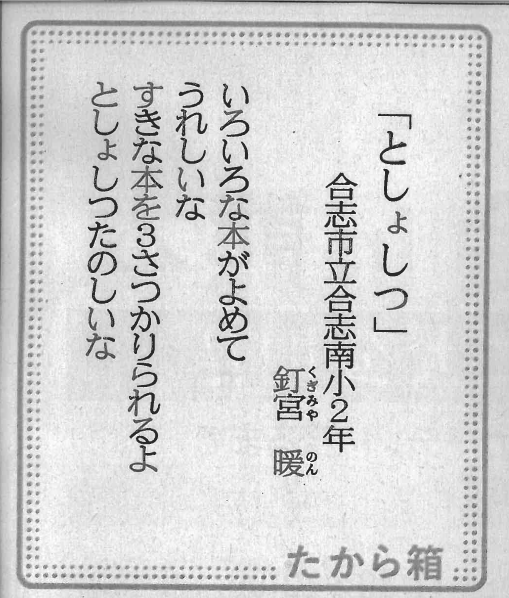 「としょしつ」
合志市立合志南小2年
釘宮 暖
くぎみや のん
いろいろな本がよめて
うれしいな
すきな本を3さつかりられるよ
としょしつたのしいな
たから箱